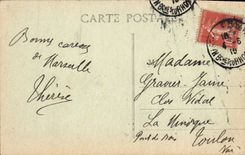 CARTE POSTALE
Bonnes caresses
de Marseille
Thérèse
Madame
Gravier Jaime
Clos Vidal
La Minorque
Pont du Bois Toulon
Var